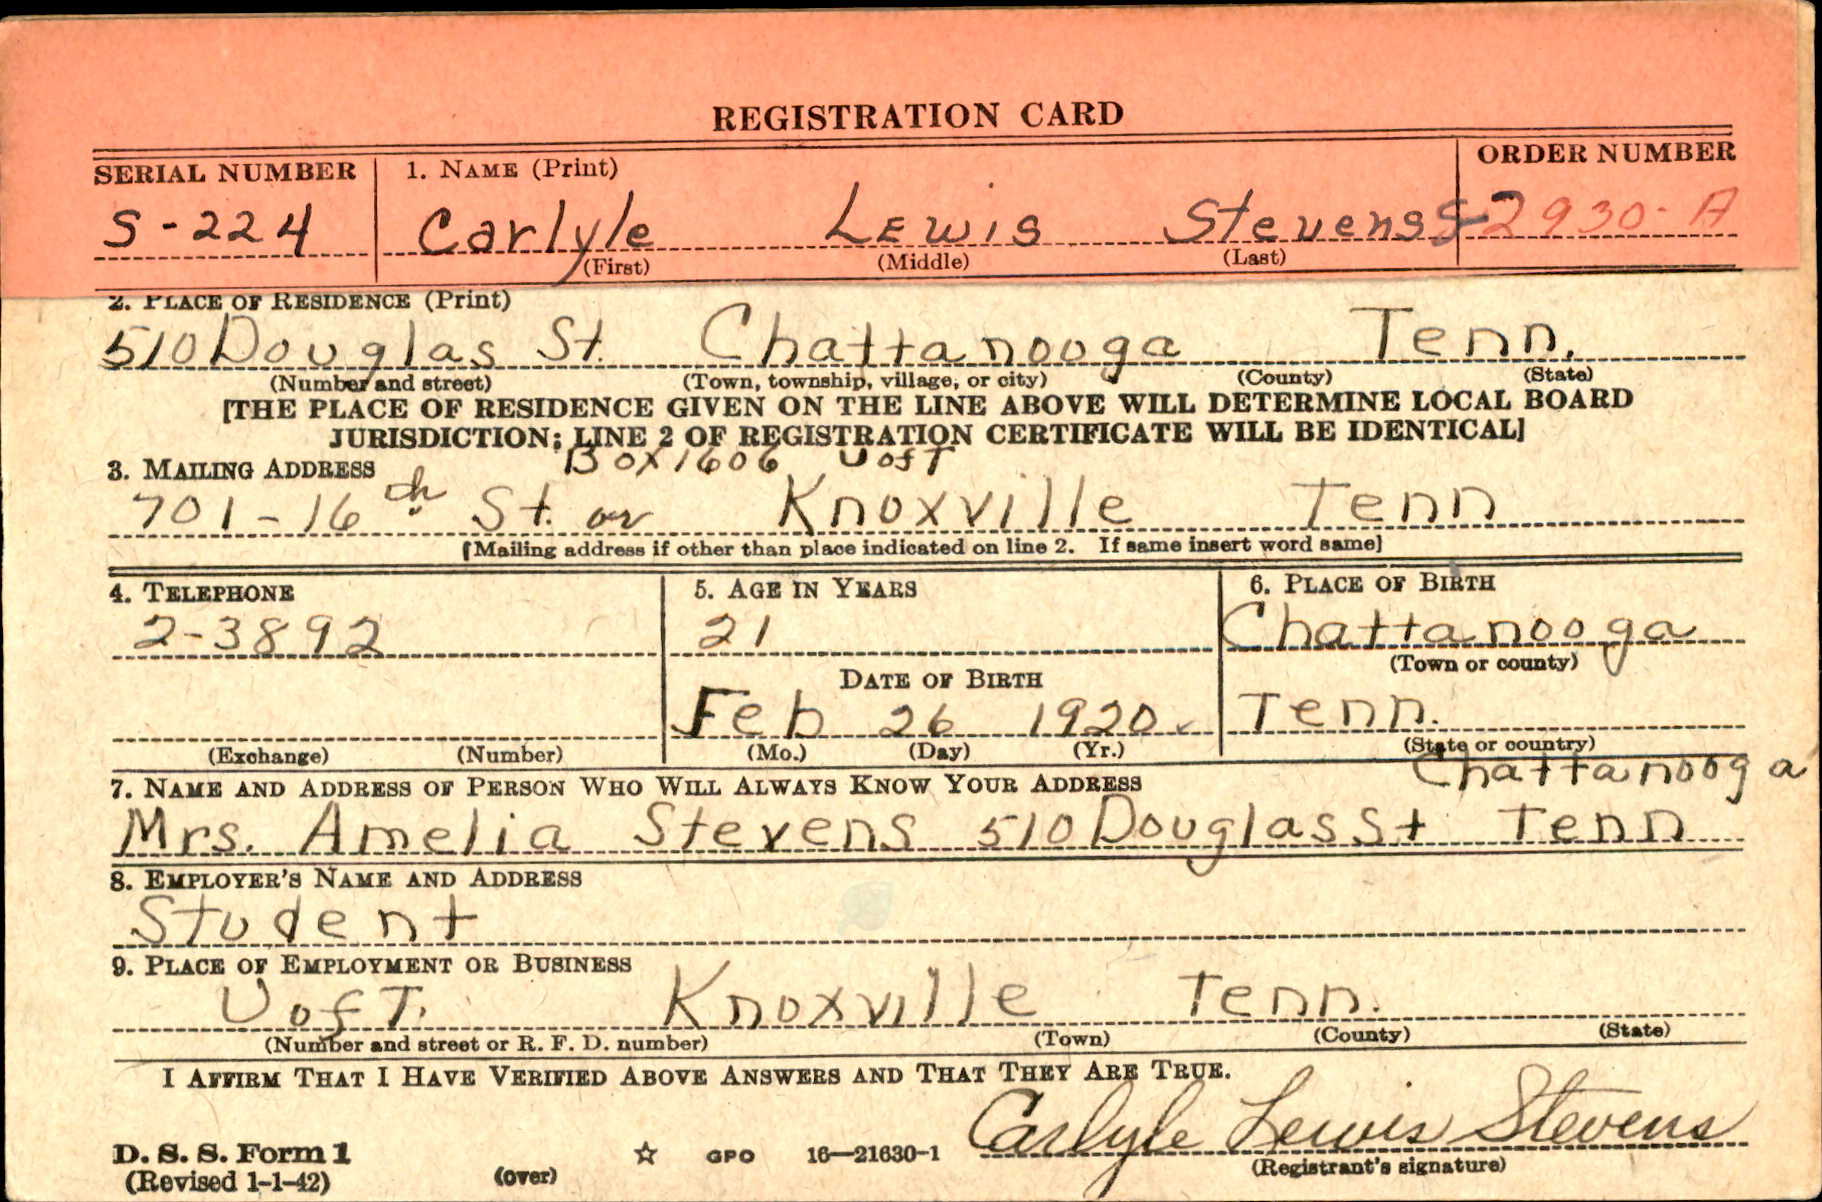 REGISTRATION CARD
SERIAL NUMBER 1. NAME (Print) ORDER NUMBER
S-224 Carlyle Lewis Stevens 2930-A
(First) (Middle) (Last)
2. PLACE OF RESIDENCE (Print)
510 Douglas St. Chattanooga Tenn.
(Number and street) (Town, township, village, or city) (County) (State)
[THE PLACE OF RESIDENCE GIVEN ON THE LINE ABOVE WILL DETERMINE LOCAL BOARD
JURISDICTION; LINE 2 OF REGISTRATION CERTIFICATE WILL BE IDENTICAL]
3. MAILING ADDRESS Box 1606 U of T
701-16th St. or Knoxville Tenn
[Mailing address if other than place indicated on line 2. If same insert word same]
4. TELEPHONE 5. AGE IN YEARS 6. PLACE OF BIRTH
2-3892 21 Chattanooga
(Town or county)
DATE OF BIRTH
Feb 26 1920 Tenn.
(Exchange) (Number) (Mo.) (Day) (Yr.) (State or country)
7. NAME AND ADDRESS OF PERSON WHO WILL ALWAYS KNOW YOUR ADDRESS Chattanooga
Mrs. Amelia Stevens 510 Douglas St Tenn
8. EMPLOYER'S NAME AND ADDRESS
Student
9. PLACE OF EMPLOYMENT OR BUSINESS
U of T. Knoxville Tenn.
(Number and street or R. F. D. number) (Town) (County) (State)
I AFFIRM THAT I HAVE VERIFIED ABOVE ANSWERS AND THAT THEY ARE TRUE.
Carlyle Lewis Stevens
D. S. S. Form 1 (over) ☆ GPO 16—21630-1 (Registrant's signature)
(Revised 1-1-42)